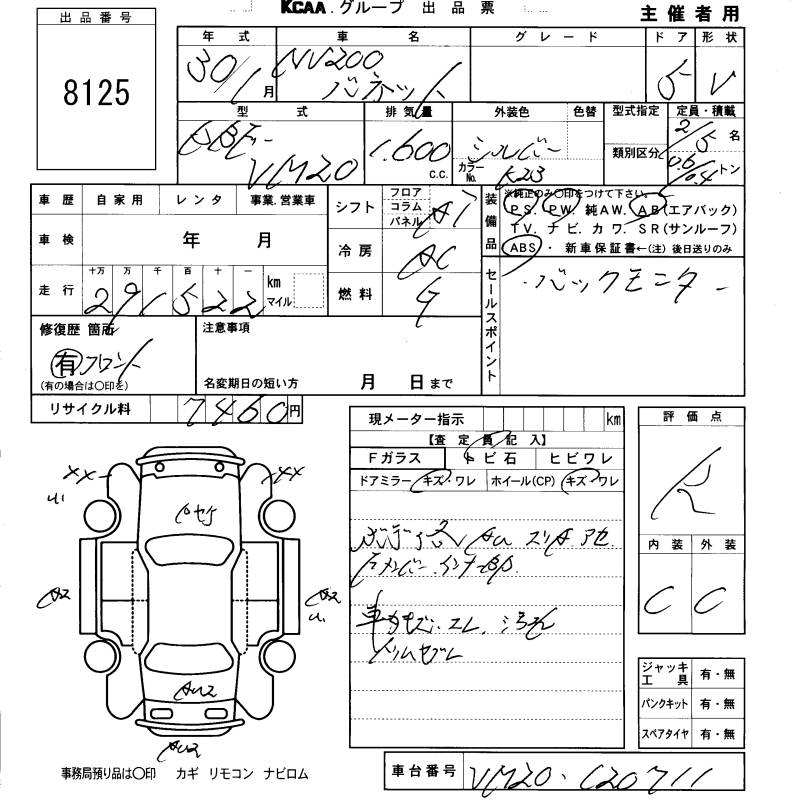 KCAA.グループ 出品票
主催者用
出品番号
8125
年式 車名 グレード ドア 形状
30/1月 NV200 バネット 5 V
型式 排気量 外装色 色替 型式指定 定員・積載
DBF- VM20 1.600 c.c. シルバー カラーNo. K23 類別区分 2/5名 0.6/0.4トン
車歴 自家用 レンタ 事業.営業車
シフト フロア コラム パネル AT
装備品 ※純正のみ○印をつけて下さい。
PS. PW. 純AW. AB(エアバック)
TV. ナビ. カワ. SR(サンルーフ)
ABS・ 新車保証書←(注) 後日送りのみ
車検 年 月
冷房 AC
走行 十万 万 千 百 十 一
291522 km マイル
燃料 G
セールスポイント
・バックモニター
修復歴 箇所
有 フロント
(有の場合は○印を)
注意事項
名変期日の短い方 月 日まで
リサイクル料 7460円
現メーター指示 km
【査定員記入】
Fガラス トビ石 ヒビワレ
ドアミラー キズ・ワレ ホイール(CP) キズ・ワレ
評価点
R
内装 外装
C C
XX
XX
A2
A2
AU2
AU2
ジャッキ工具 有・無
パンクキット 有・無
スペアタイヤ 有・無
事務局預り品は○印 カギ リモコン ナビロム
車台番号 VM20-120711